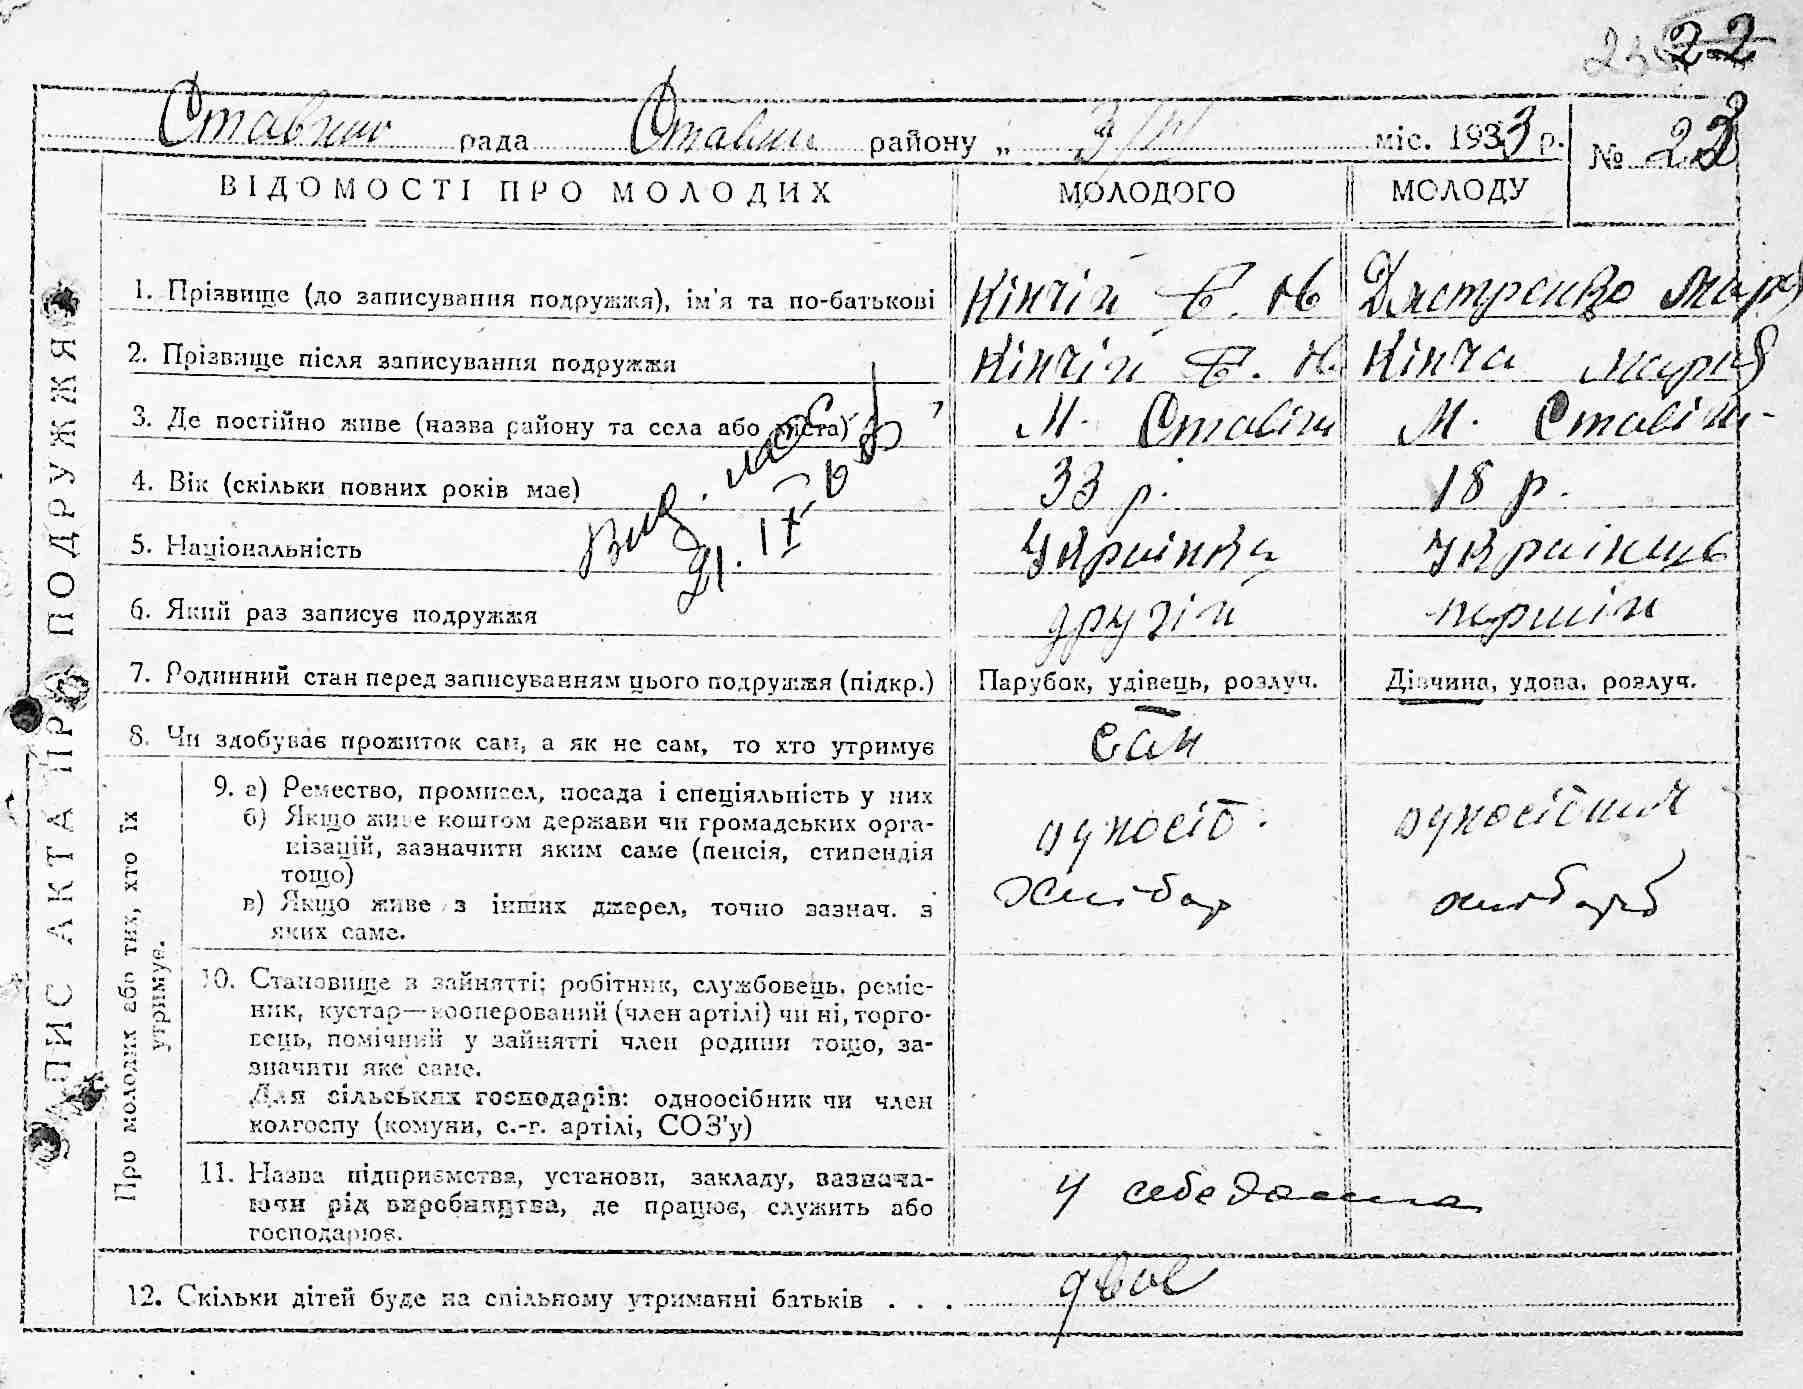 22
Ставищ рада Ставищ району „ 3/IV міс. 1933 р.
№ 23
ВІДОМОСТІ ПРО МОЛОДИХ МОЛОДОГО МОЛОДУ
ЗАПИС АКТА ПРО ПОДРУЖЖЯ
1. Прізвище (до записування подружжя), ім'я та по-батькові Кінчій Є. Ів
2. Прізвище після записування подружжя Кінчій Є. Ів. Кінча Марія
3. Де постійно живе (назва району та села або міста) М. Ставіщ М. Ставіщ
4. Вік (скільки повних років має) 33 р. 18 р.
21. IX
5. Національність Українка Українець
6. Який раз записує подружжя другій першій
7. Родинний стан перед записуванням цього подружжя (підкр.) Парубок, удівець, розлуч. Дівчина, удова, розлуч.
8. Чи здобуває прожиток сам, а як не сам, то хто утримує сам
Про молодих або тих, хто їх
утримує.
9. а) Ремество, промисел, посада і спеціяльність у них
б) Якщо живе коштом держави чи громадських орга-
нізацій, зазначити яким саме (пенсія, стипендія
тощо)
в) Якщо живе з інших джерел, точно зазнач. з
яких саме.
хлібор хлібороб
10. Становище в зайнятті: робітник, службовець, реміс-
ник, кустар—кооперований (член артілі) чи ні, торго-
вець, помічний у зайнятті член родини тощо, за-
значити яке саме.
Для сільських господарів: одноосібник чи член
колгоспу (комуни, с.-г. артілі, СОЗ'у)
11. Назва підприємства, установи, закладу, зазнача-
ючи рід виробництва, де працює, служить або
господарює.
у себе дома
12. Скільки дітей буде на спільному утриманні батьків . . . двоє